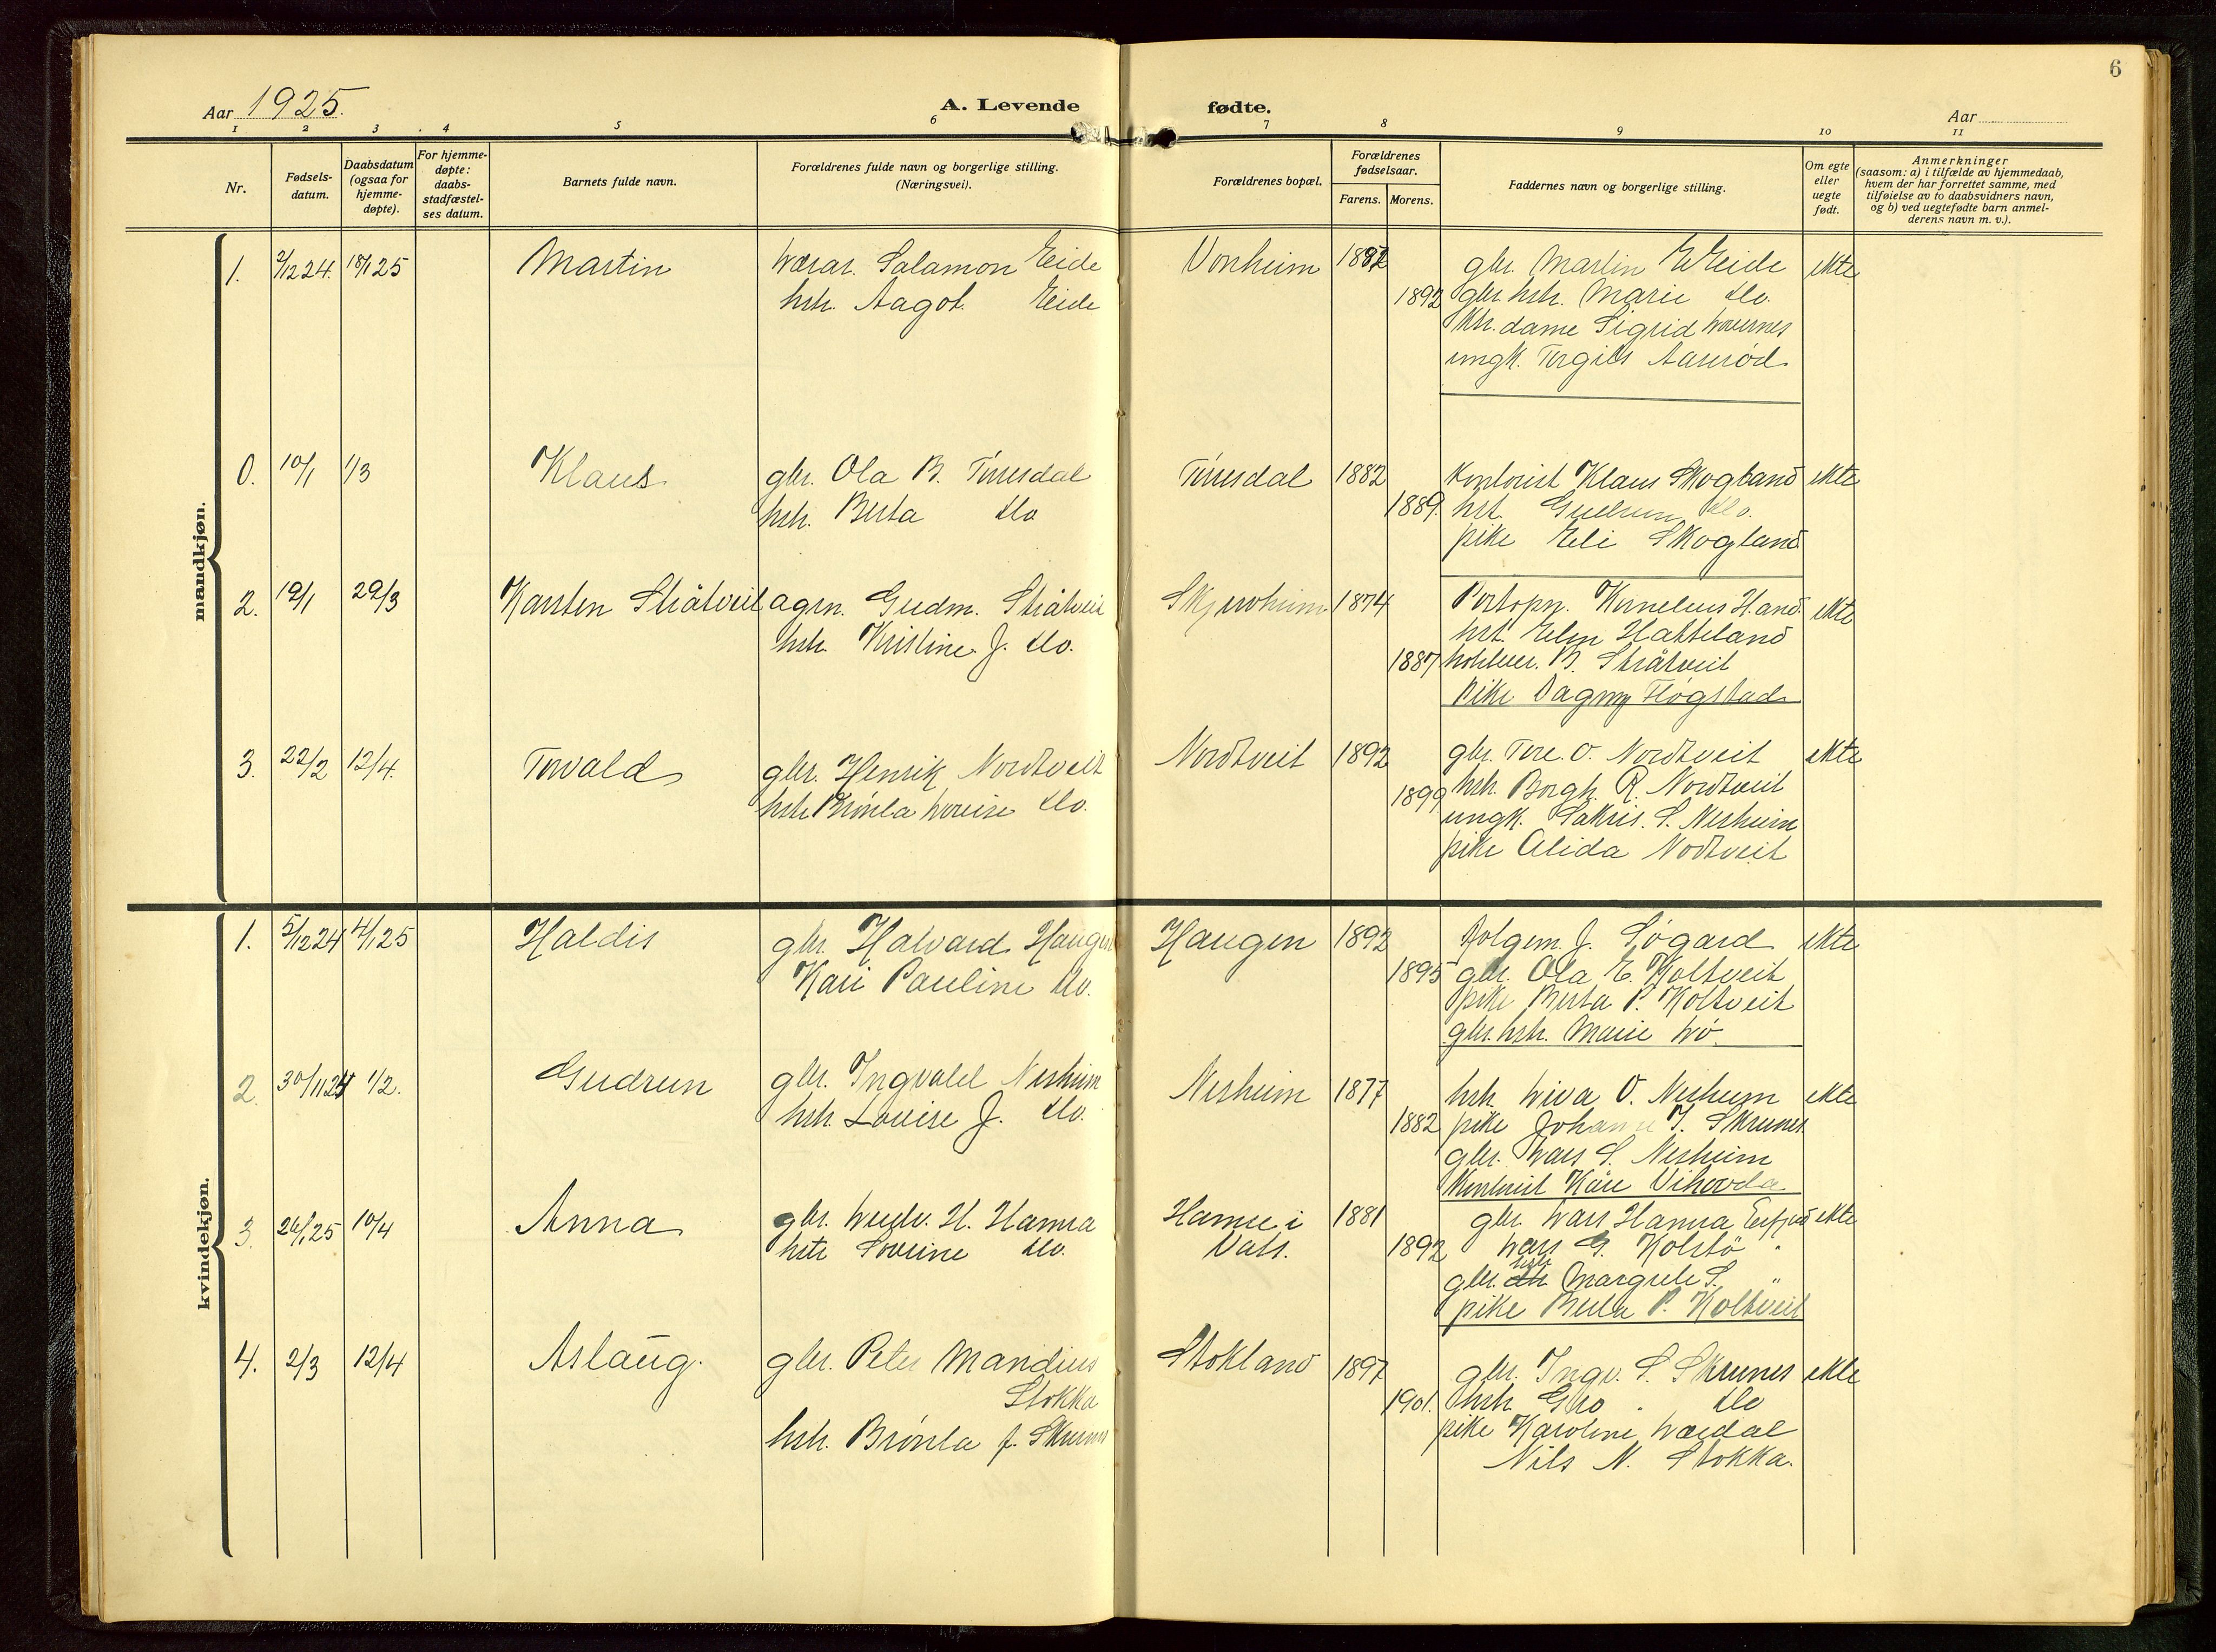 6
Aar 1925.
A. Levende fødte.
Aar
1 2 3 4 5 6 7 8 9 10 11
Nr.
Fødsels-
datum.
Daabsdatum
(ogsaa for
hjemme-
døpte).
For hjemme-
døpte:
daabs-
stadfæstel-
ses datum.
Barnets fulde navn.
Forældrenes fulde navn og borgerlige stilling.
(Næringsvei).
Forældrenes bopæl.
Forældrenes
fødselsaar.
Farens. Morens.
Faddernes navn og borgerlige stilling.
Om egte
eller
uegte
født.
Anmerkninger
(saasom: a) i tilfælde av hjemmedaab,
hvem der har forrettet samme, med
tilføielse av to daabsvidners navn,
og b) ved uegtefødte barn anmel-
derens navn m. v.).
mandkjøn.
1. 2/12 24. 18/1 25 Martin Lærar. Salamon Eide Vonheim 1892 gbr. Martin E Eide ekte
hstr. Aagot. Eide 1892 gbr. hstr. Marie do.
dame Sigrid
ungk. Torgils Aarrød
0. 10/1 1/3 Klaus gbr. Ola B. Tirrsdal 1882 Kontorist Klaus Skogland ekte
hstr. Berta do 1889. hst. Gudrun do.
pike Eli Skogland
2. 19/1 29/3 Karsten Stråtveit agrn. Gudm. Stråtveit Skjeroheim 1874 Kornelius H.and ekte
hstr. Kristine J. do. hst. Hatteland
1887 B. Stråtveit
pike Dagny Fløgstad
3. 22/2 12/4. Torvald gbr. Henrik Nordtveit Nordtveit 1892 gbr. Tore O. Nordtveit ekte
hstr. Brönla Lovise do. 1899 hstr. Borgh. R. Nordtveit
ungk. Sakris. S. Nesheim
pike Alida Nodtveit
kvindekjøn.
1. 5/12 24 4/1 25 Haldis gbr. Halvard Haugen Haugen 1892 J. Søgard ekte
Kari Pauline do. 1895 gbr. Ola E. Koltveit
pike Berta P. Koltveit
gbr. hstr. Marie Lø.
2. 30/11 24 1/2. Gudrun gbr. Ingvald Nesheim Nesheim 1877 hstr. Liva O. Nesheim ekte
hstr. Louise J. do. 1882 pike Johanne T. Skrunes
gbr. Lars S. Nesheim
Kontorist Kåre Vihovda
3. 26/1 25 10/4 Anna gbr. Ludv. H. Hamra Hamre i 1881 gbr. Lars Hamra Erfjord ekte
hstr Severine do. Vats. 1892 Lars G. Kolstö "
gbr. hstr. Margrete S. "
pike Berta P. Koltveit
4. 2/3 12/4 Aslaug. gbr. Peter Mandius Stokland 1897 gbr. Ingv. S. Skrunes ekte
Stokka 1901. hstr. Gro " do
hstr. Brönla f. Skrunes pike Karoline Lærdal
Nils N. Stokka.